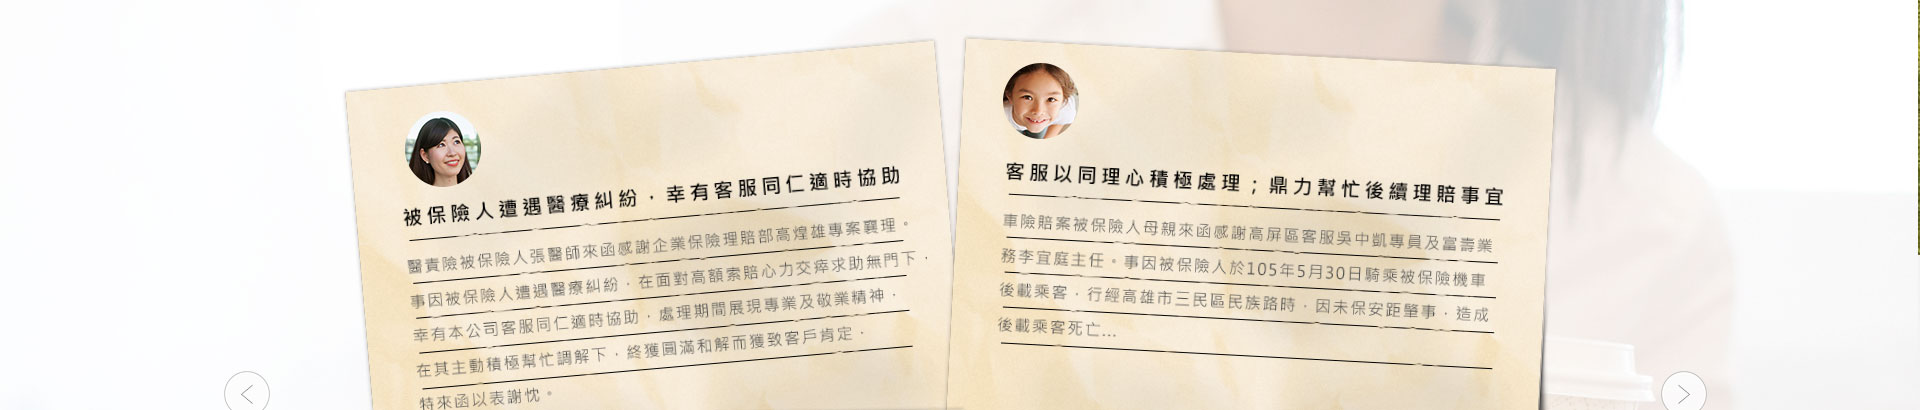 被保險人遭遇醫療糾紛，幸有客服同仁適時協助
醫責險被保險人張醫師來函感謝企業保險理賠部高煌雄專案襄理。
事因被保險人遭遇醫療糾紛，在面對高額索賠心力交瘁求助無門下，
幸有本公司客服同仁適時協助，處理期間展現專業及敬業精神，
在其主動積極幫忙調解下，終獲圓滿和解而獲致客戶肯定，
特來函以表謝忱。
客服以同理心積極處理；鼎力幫忙後續理賠事宜
車險賠案被保險人母親來函感謝高屏區客服吳中凱專員及富壽業
務李宜庭主任。事因被保險人於105年5月30日騎乘被保險機車
後載乘客，行經高雄市三民區民族路時，因未保安距肇事，造成
後載乘客死亡...